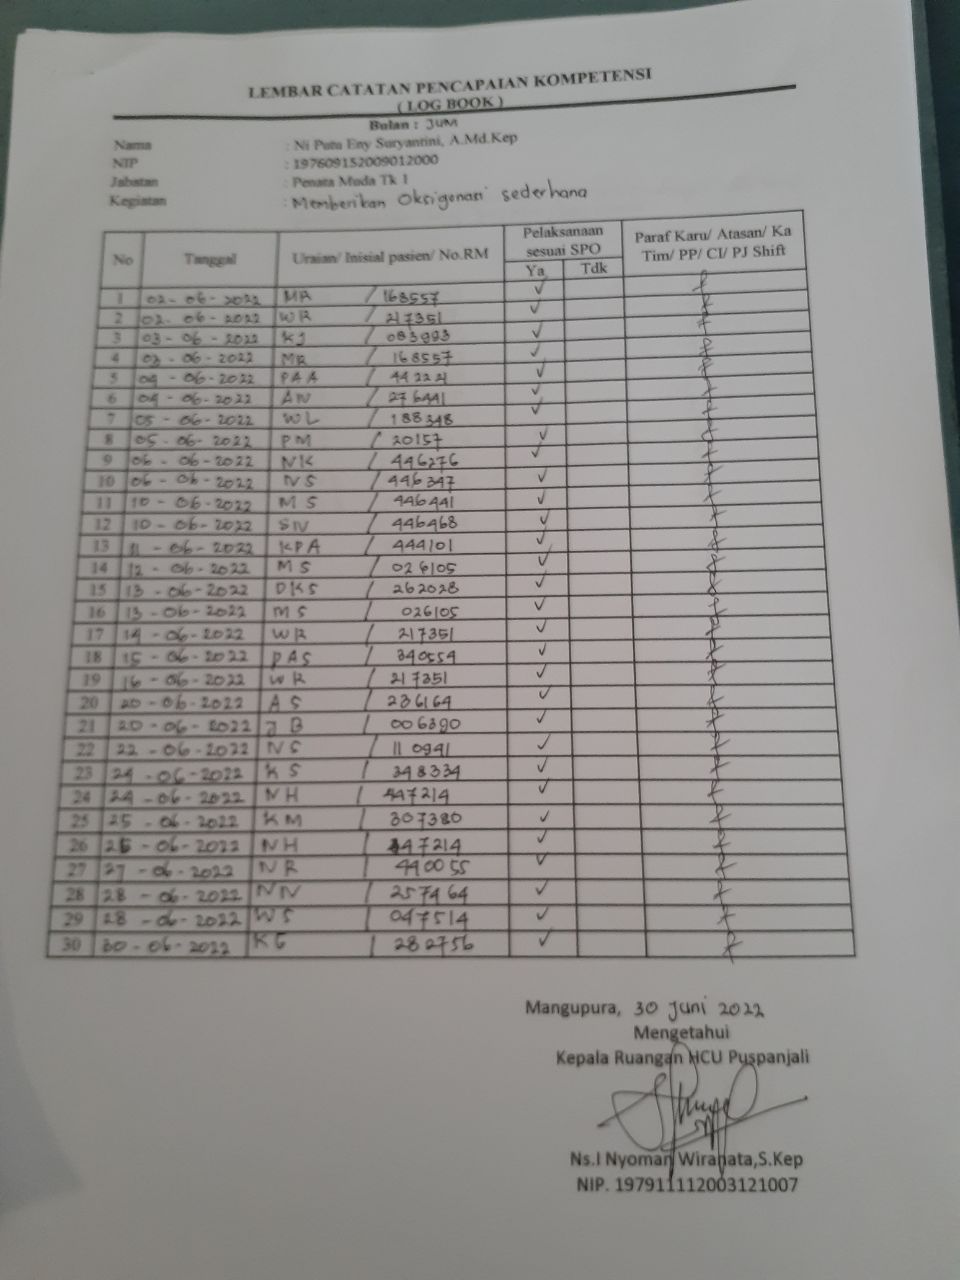 LEMBAR CATATAN PENCAPAIAN KOMPETENSI
( LOG BOOK )
Bulan : JUNI
Nama : Ni Putu Eny Suryantini, A.Md.Kep
NIP : 197609152009012000
Jabatan : Penata Muda Tk 1
Kegiatan : Memberikan Oksigenasi sederhana
No Tanggal Uraian/ Inisial pasien/ No.RM Pelaksanaan sesuai SPO Paraf Karu/ Atasan/ Ka Tim/ PP/ CI/ PJ Shift
Ya Tdk
1 02-06-2022 MR / 168557 ✓
2 02-06-2022 WR / 217351 ✓
3 03-06-2022 KJ / 083993 ✓
4 03-06-2022 MR / 168557 ✓
5 04-06-2022 PAA / 442221 ✓
6 04-06-2022 AN / 276441 ✓
7 05-06-2022 WL / 188348 ✓
8 05-06-2022 PM / 20157 ✓
9 06-06-2022 NK / 446276 ✓
10 06-06-2022 NS / 446347 ✓
11 10-06-2022 MS / 446441 ✓
12 10-06-2022 SN / 446468 ✓
13 11-06-2022 KPA / 444101 ✓
14 12-06-2022 MS / 026105 ✓
15 13-06-2022 DKS / 262028 ✓
16 13-06-2022 MS / 026105 ✓
17 14-06-2022 WR / 217351 ✓
18 15-06-2022 PAS / 340554 ✓
19 16-06-2022 WR / 217351 ✓
20 20-06-2022 AS / 236164 ✓
21 20-06-2022 JB / 006390 ✓
22 22-06-2022 NS / 110941 ✓
23 24-06-2022 KS / 348334 ✓
24 24-06-2022 NH / 447214 ✓
25 25-06-2022 KM / 307380 ✓
26 25-06-2022 NH / 447214 ✓
27 27-06-2022 NR / 440055 ✓
28 28-06-2022 NN / 257464 ✓
29 28-06-2022 WS / 047514 ✓
30 30-06-2022 KG / 282756 ✓
Mangupura, 30 Juni 2022
Mengetahui
Kepala Ruangan HCU Puspanjali
Ns.I Nyoman Wiranata,S.Kep
NIP. 197911112003121007